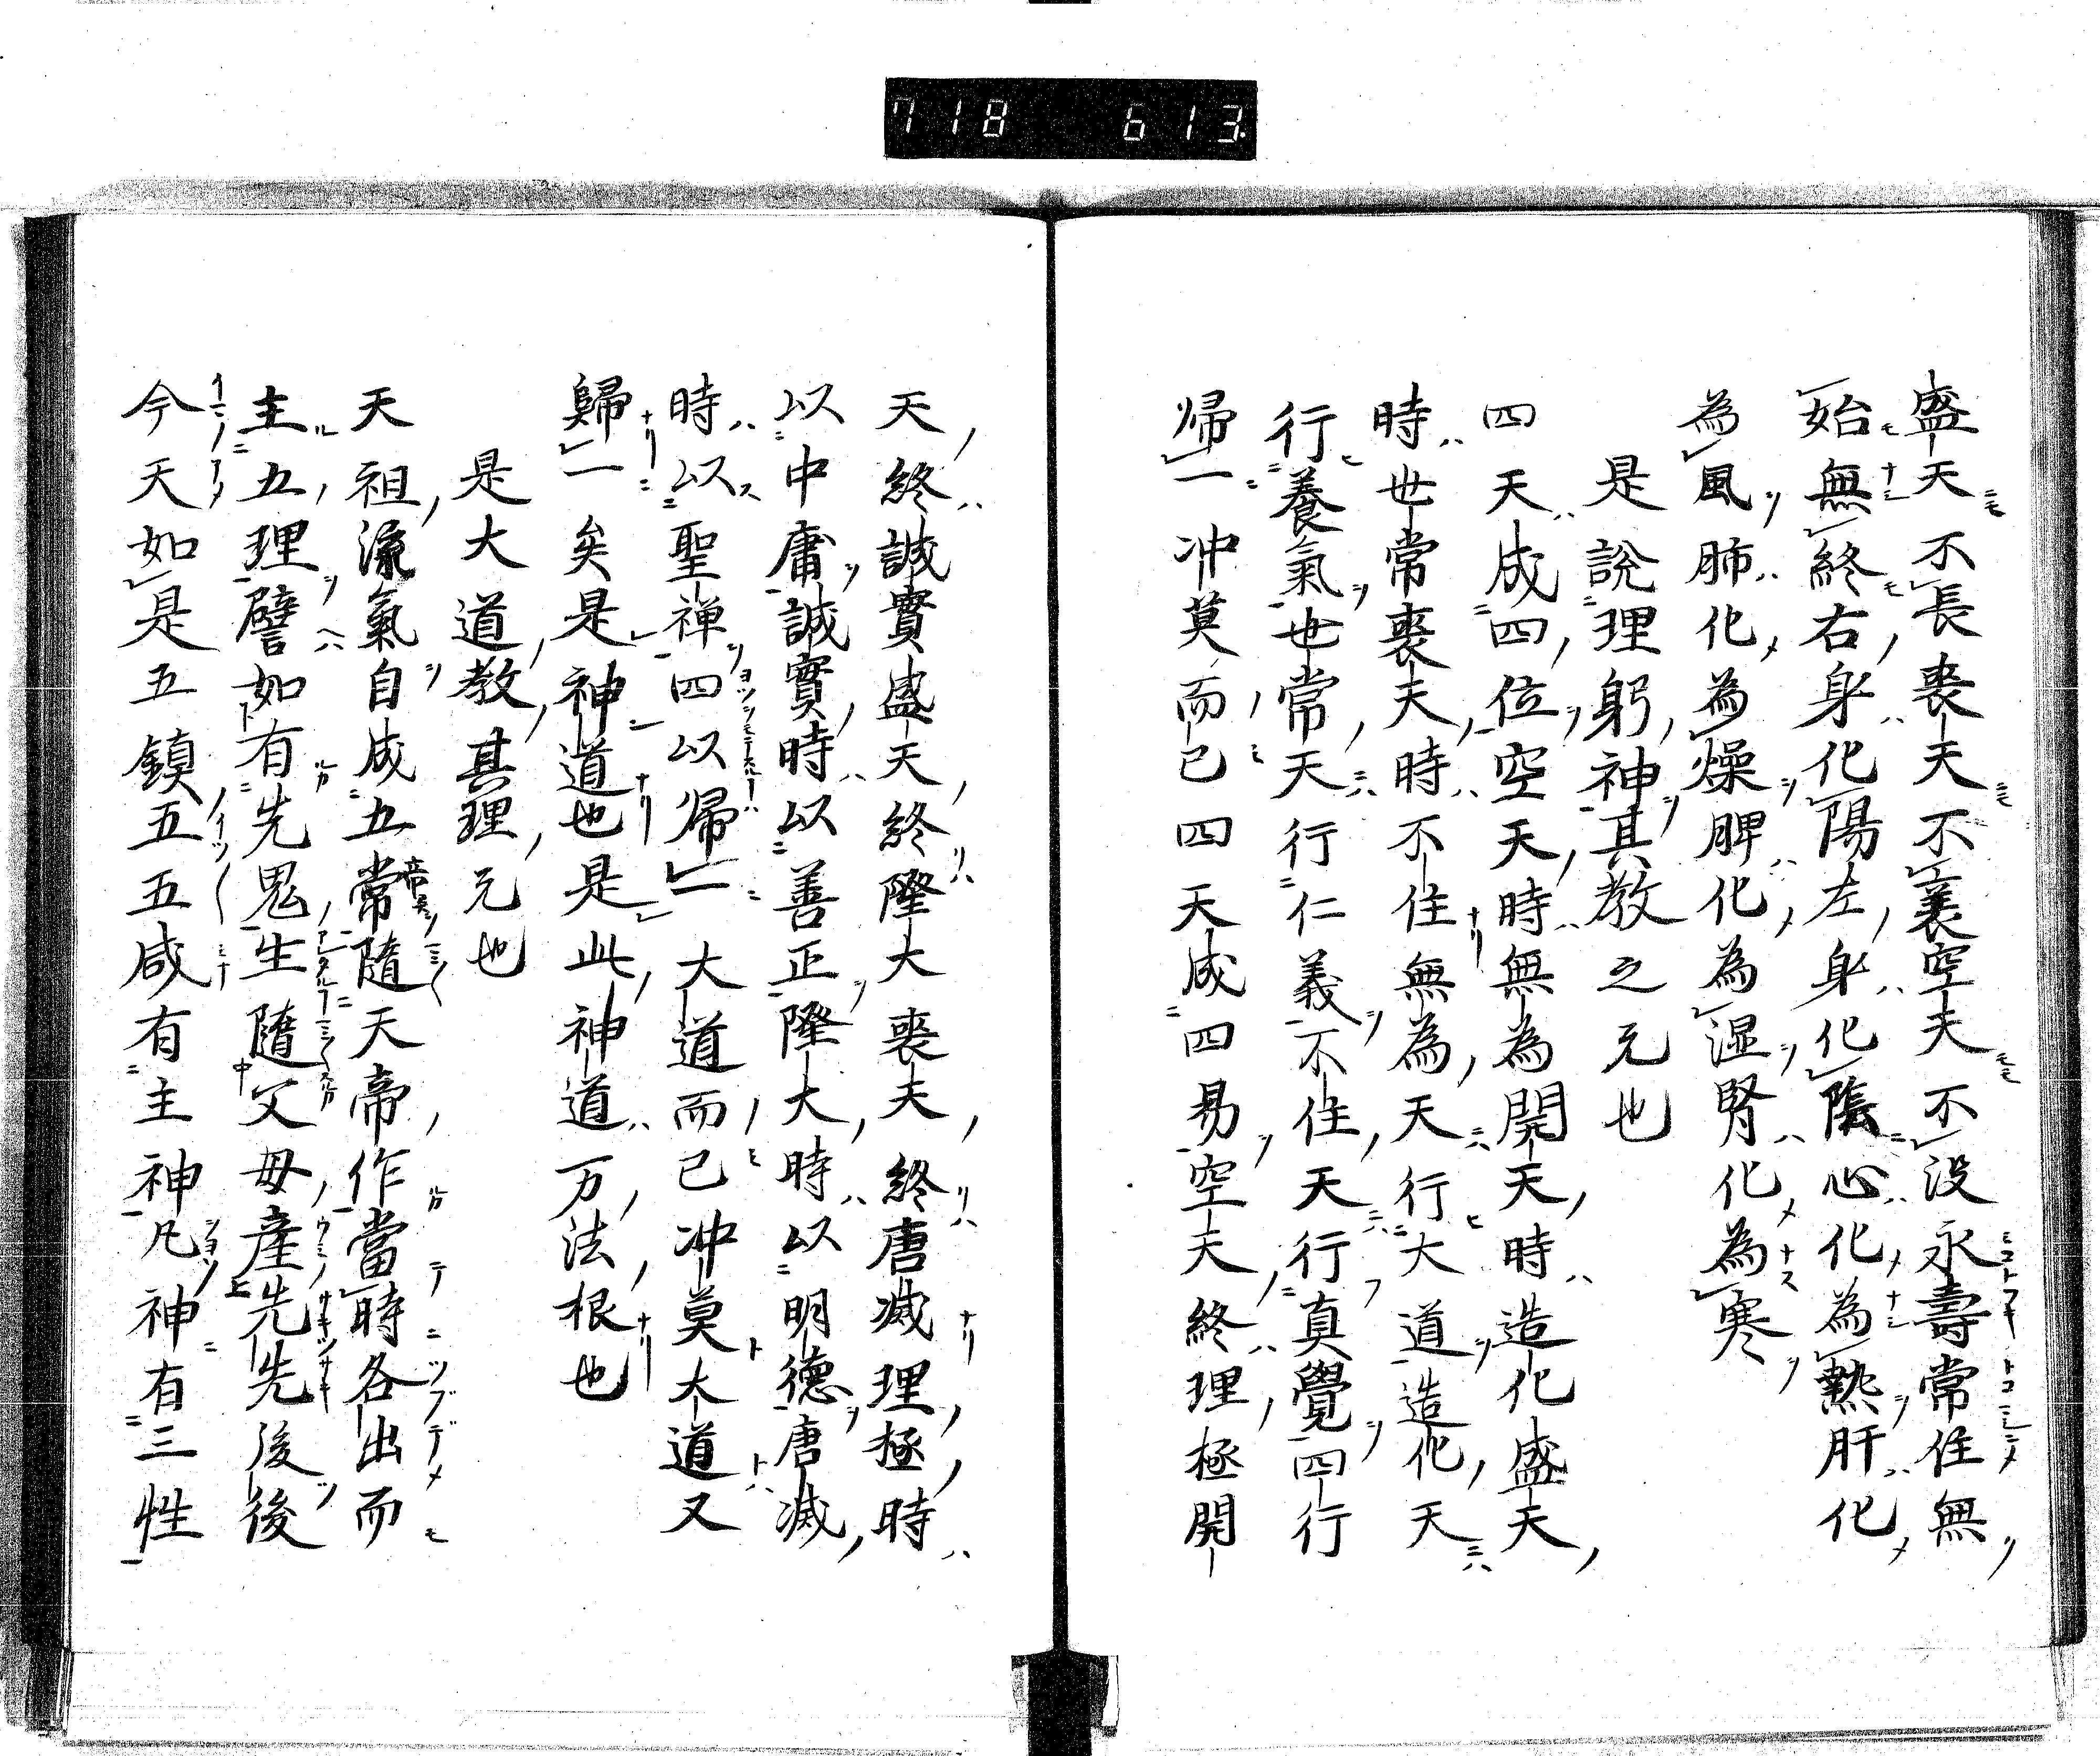 718 613
盛天不長喪天不襄空夫不没永壽常住無
始無終右身化陽左身化陰心化為熱肝化
為風肺化為燥脾化為湿腎化為寒
是説理躬神其教之元也
四天成四位空天時無為開天時造化盛天
時世常喪夫時不住無為天行大道造化天
行養氣世常天行仁義不住天行真覺四行
帰一冲莫而已四天成四易空夫終理極開
天終誠實盛天終隆大喪夫終唐滅理極時
以中庸誠實時以善正隆大時以明德唐滅
時以聖禅四以帰一大道而已冲莫大道又
歸一矣是神道也是此神道万法根也
是大道教其理元也
天祖流氣自成五常隨天帝作當時各出而
主五理譬如有先鬼生隨父母産先先後後
今天如是五鎮五五咸有主神凡神有三性